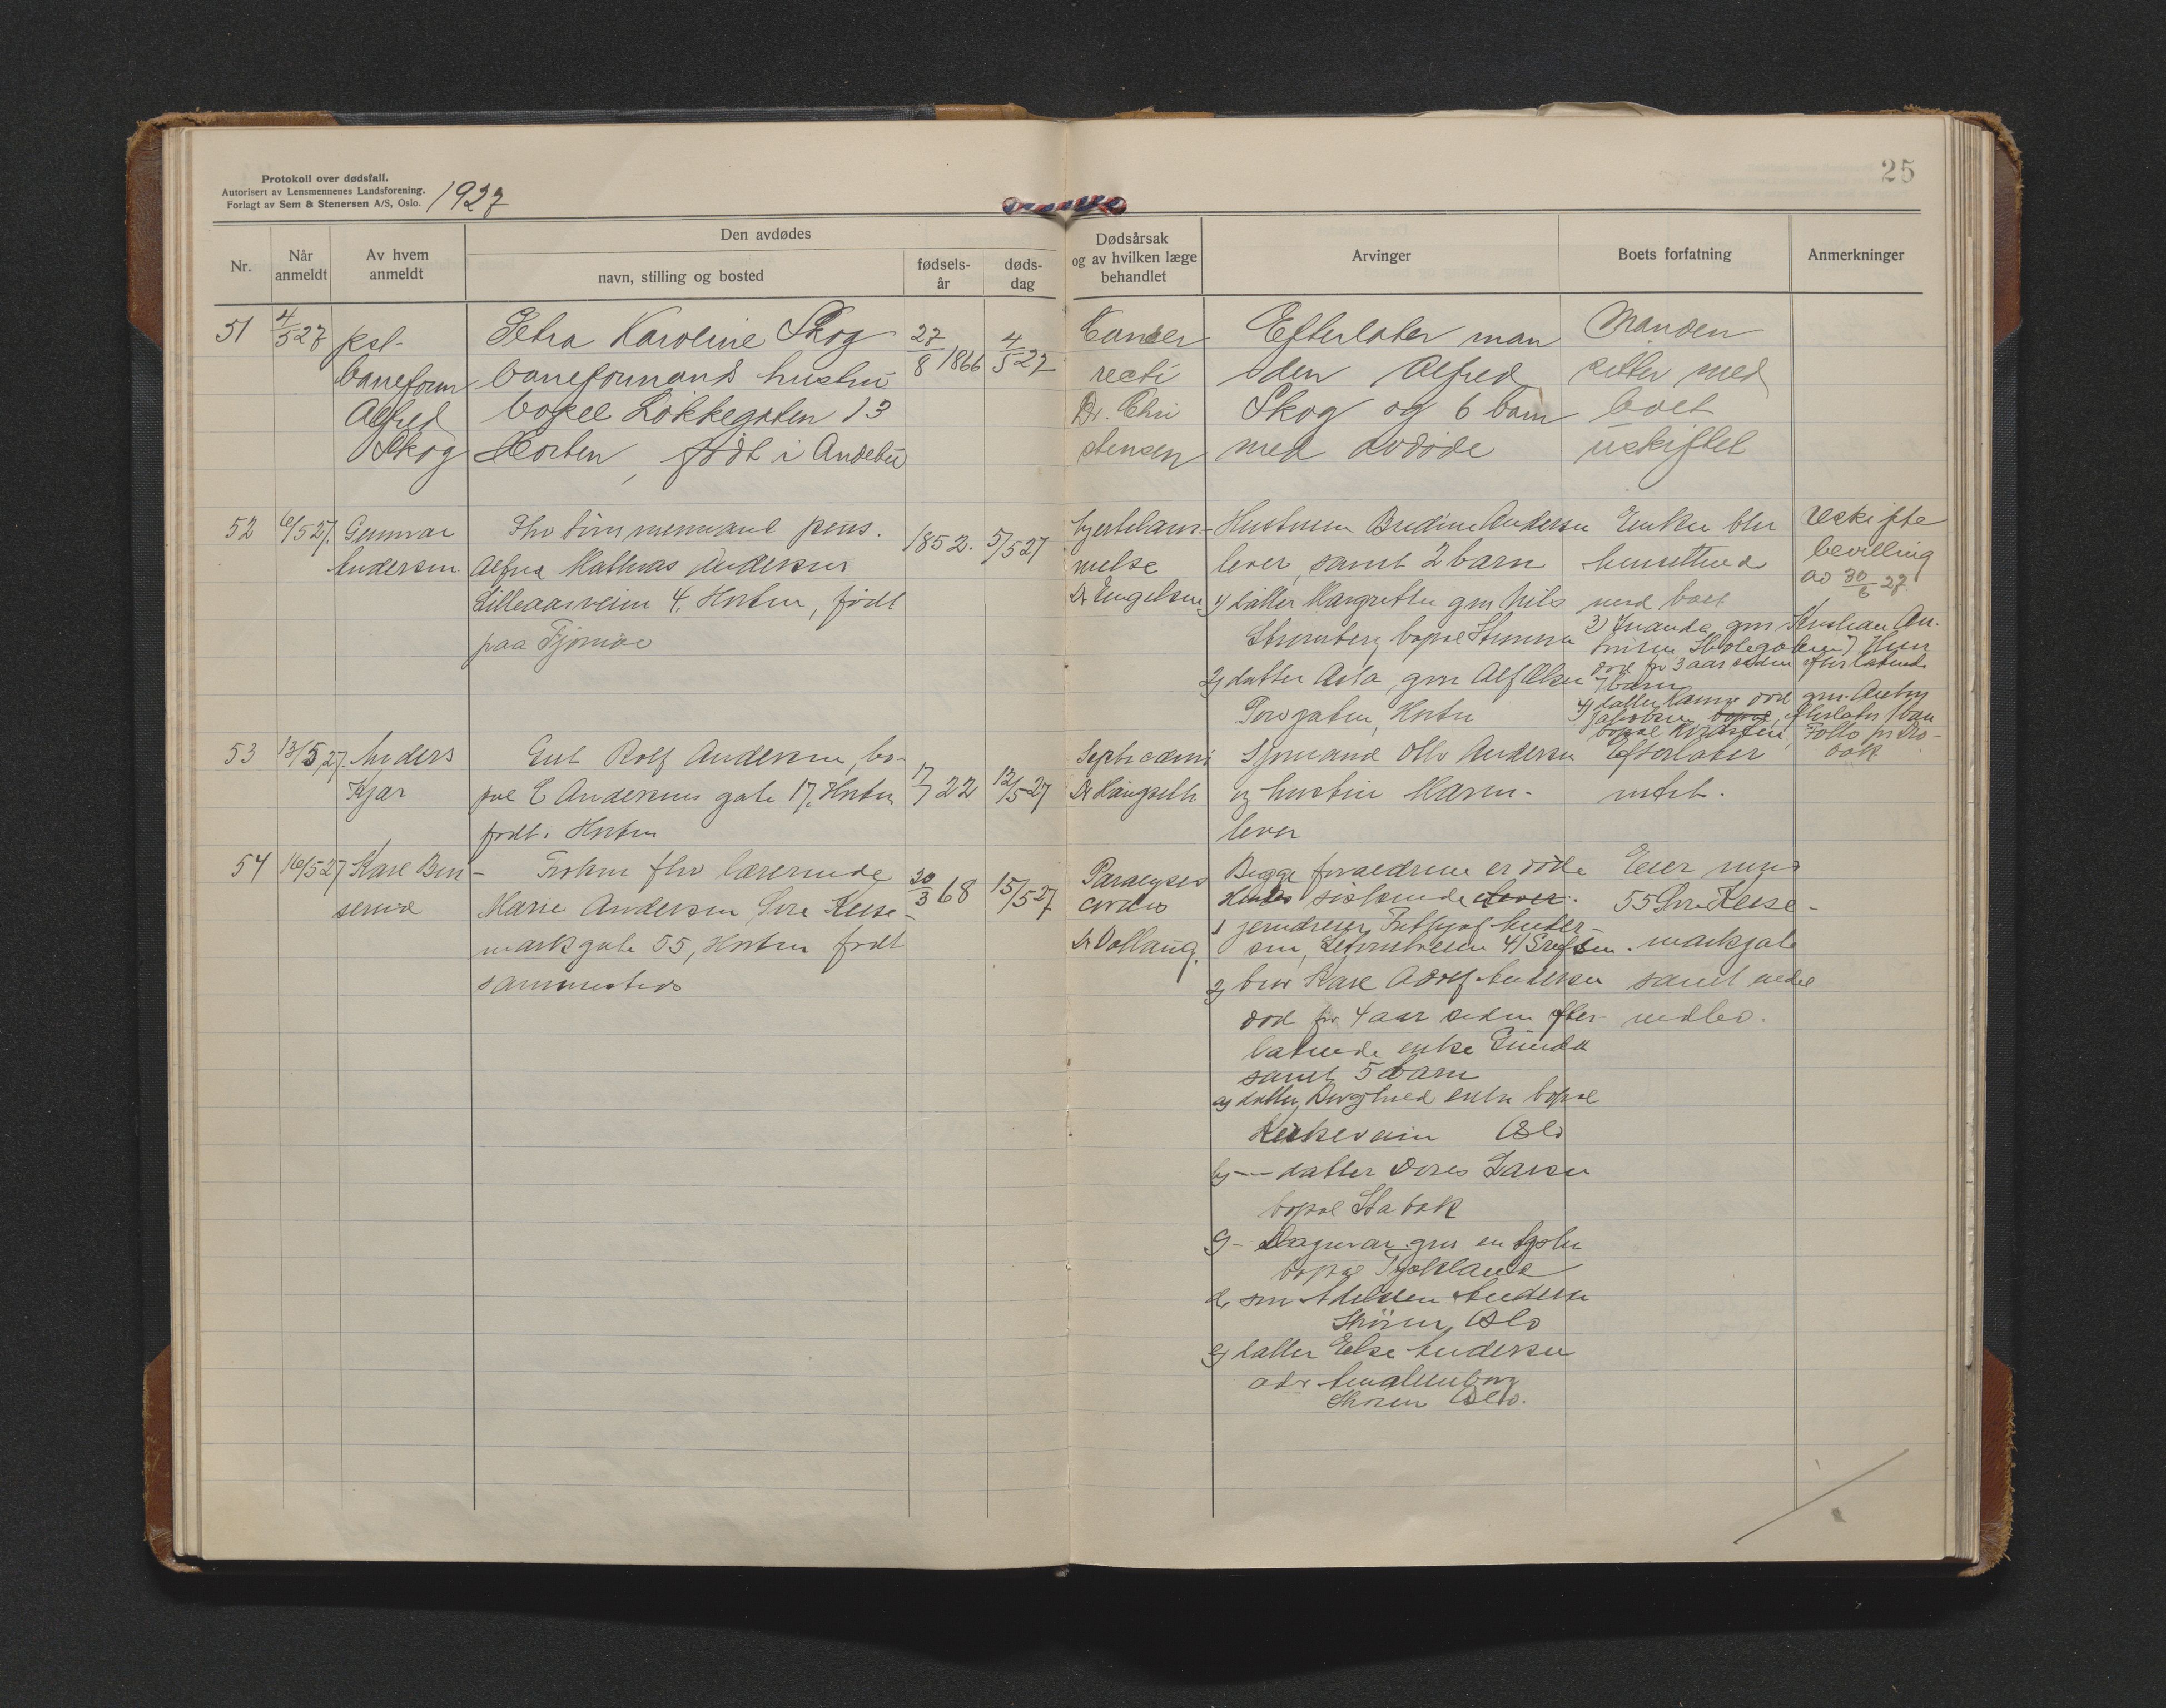 Protokoll over dødsfall.
Autorisert av Lensmennenes Landsforening.
Forlagt av Sem & Stenersen A/S, Oslo.
1927
25
Nr.
Når anmeldt
Av hvem anmeldt
Den avdødes
navn, stilling og bosted
fødsels-år
døds-dag
Dødsårsak og av hvilken læge behandlet
Arvinger
Boets forfatning
Anmerkninger
51
4/5 27
pst.
baneform
Alfred
Skog
Petra Karoline Skog
baneformands hustru
bopel Løkkegaten 13
Horten, født i Andebu
27/8 1866
4/5 27
Cancer
recti
Dr. Chri
stensen
Efterlater man
den Alfred
Skog og 6 barn
med avdøde
Manden
sitter med
boet
uskiftet
52
6/5 27.
Gunnar
Andersen
Fhv tømmermand pens.
Mathias Andersen
Lilleaasveien 4. Horten, født
paa Tjømø
1852.
5/5 27
Hjertelam-
melse
Dr Engelsen
Hustruen Andersen
lever, samt 2 barn
1) datter Margrethe gm Nils
Strømberg bopæl
2) datter Asla gm Alf Olsen
Torvgaten, Horten
Enken blir
hensittende
med boet
3) gm Kristian
død for 3 aar siden efterlatende
7 barn
4) datter død gm.
Jakobsen efterlater 1 barn
bopæl Follo pr Drø-
bak
Uskifte
bevilling
av 30/6 27.
53
13/5 27.
Anders
Kjær
Gut Rolf Andersen, bo-
pæl C Andersens gate 17, Horten
født i Horten
17/7 22
12/5 27
Septicæmi
Dr Haugseth
Sjømand Andersen
og hustru Maren.
lever
Efterlater
intet.
54
16/5 27
Karl Ben
Frøken fhv lærerinde
Marie Andersen Øvre Keise-
markgate 55, Horten født
sammesteds
20/3 68
15/5 27
Paralysis
cordis
Dr Dollaug.
Begge forældrene er døde
Hendes søskende lever.
1 Fridtjof Ander-
sen, 4/
2) bror Karl Adolf Andersen
død for 4 aar siden efter-
latende enke Gunda
samt 5 barn
a) datter enke bopæl
Kirkeveien Oslo
b) -- datter Dores Larsen
bopæl Stabæk
c) - Dagmar gm en
bopæl Tyskland
d, søn Andersen
Oslo
e) datter Else Andersen
adr Amalienborg
Oslo.
Eier med
55 Øvre Keise-
markgate
samt endel
indbo.